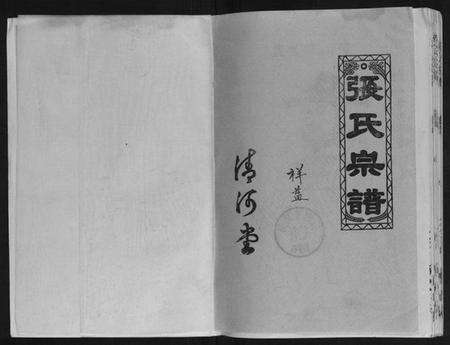 張氏宗譜
祥益
清河堂